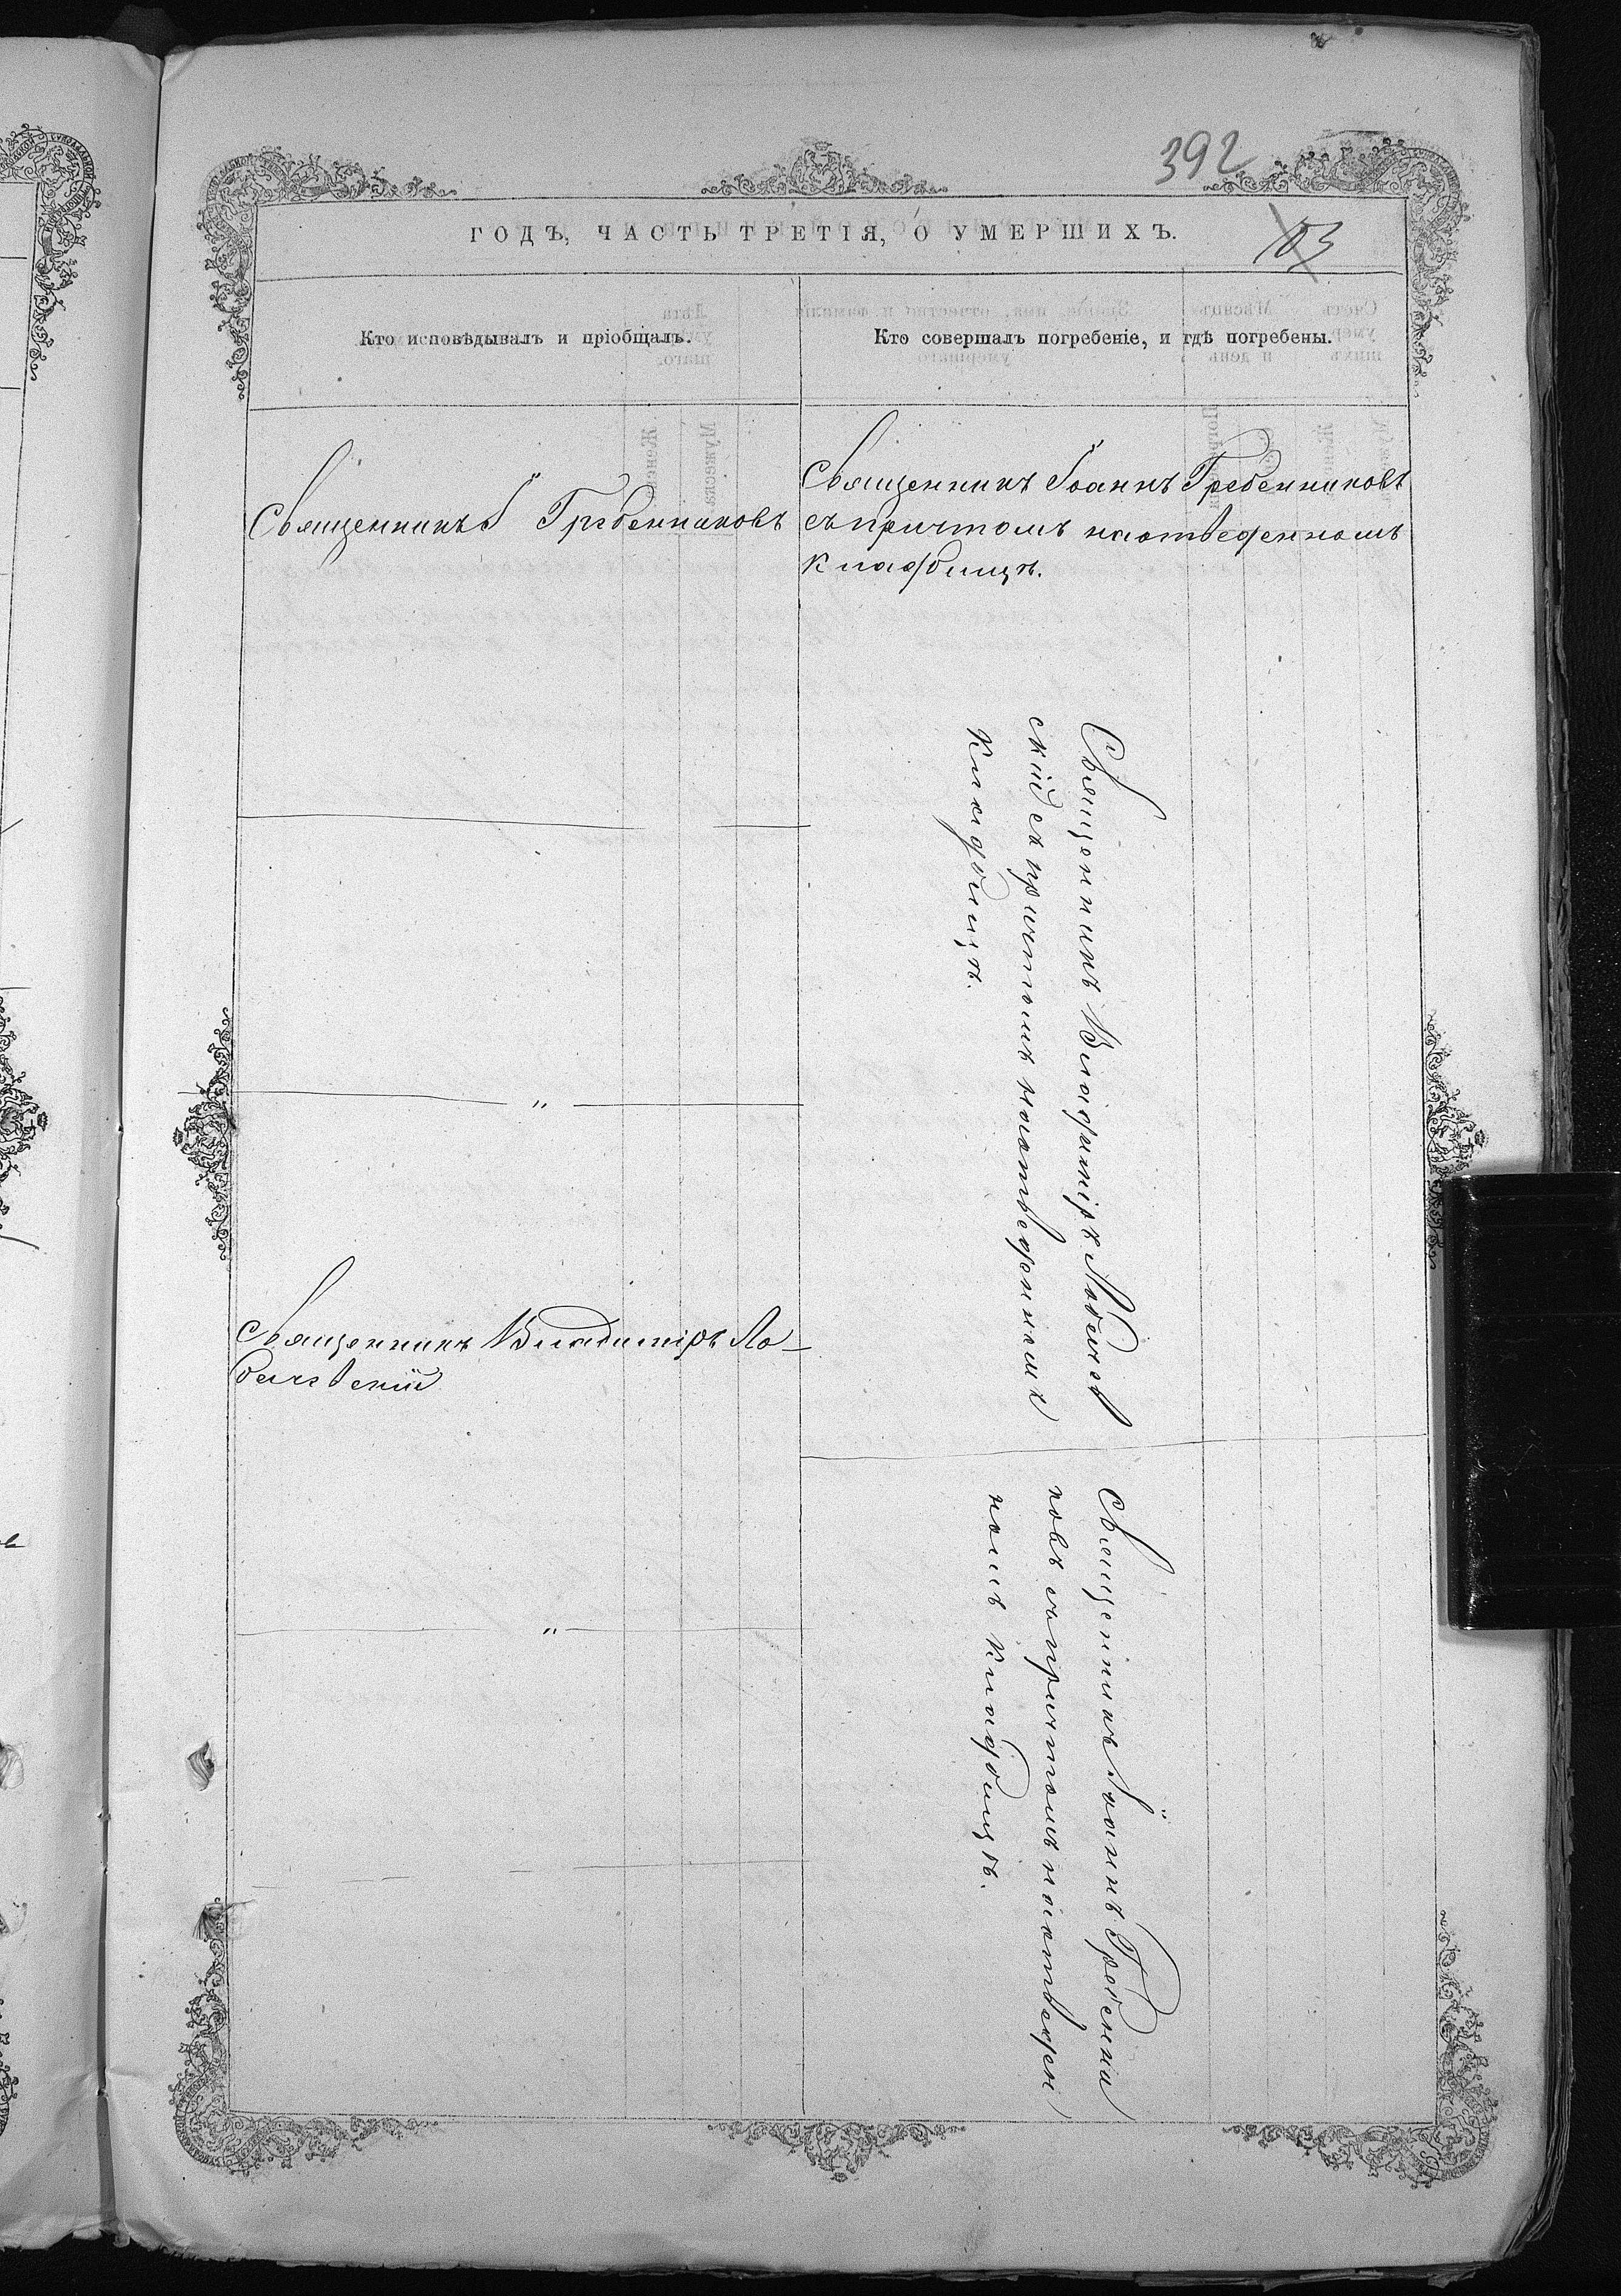 392
ГОДЪ, ЧАСТЬ ТРЕТІЯ, О УМЕРШИХЪ.
103
Кто исповѣдывалъ и пріобщалъ.
Кто совершалъ погребеніе, и гдѣ погребены.
Священникъ Гребенниковъ
Священникъ Іоаннъ Гребенниковъ
съ причтомъ на отведенномъ
кладбищѣ.
Священникъ Владиміръ Лобачев
скій съ причтомъ на отведенномъ
кладбищѣ.
"
Священникъ Владиміръ Ло-
бачевскій
Священникъ Іоаннъ Гребенни
ковъ съ причтомъ на отведен
номъ кладбищѣ.
"